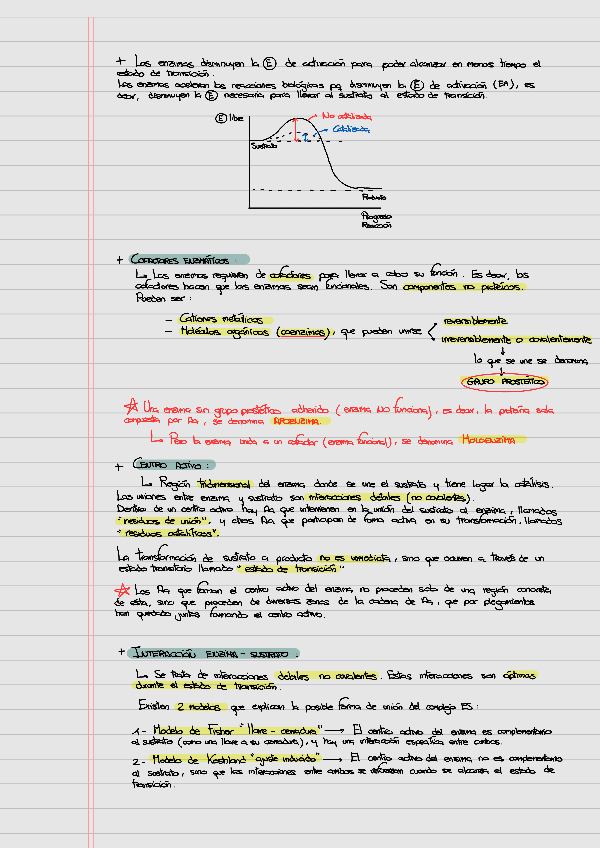 + Las enzimas disminuyen la Ⓔ de activación para poder alcanzar en menos tiempo el
estado de transición.
Las enzimas aceleran las reacciones biológicas pq disminuyen la Ⓔ de activación (EA), es
decir, disminuyen la Ⓔ necesaria para llevar al sustrato al estado de transición.
Ⓔ libre
No catalizada
Catalizada
Sustrato
Producto
Progreso
Reacción
+ COFACTORES ENZIMÁTICOS:
↳ Las enzimas requieren de cofactores para llevar a cabo su función. Es decir, los
cofactores hacen que las enzimas sean funcionales. Son componentes no proteicos.
Pueden ser:
- Cationes metálicos
- Moléculas orgánicas (coenzimas), que pueden unirse
reversiblemente
irreversiblemente o covalentemente
↓
lo que se une se denomina
↓
GRUPO PROSTÉTICO
☆ Una enzima sin grupo prostético adherido (enzima No funcional), es decir, la proteína sola
compuesta por Aa, se denomina APOENZIMA.
↳ Pero la enzima unida a un cofactor (enzima funcional), se denomina HOLOENZIMA
+ CENTRO ACTIVO:
↳ Región tridimensional del enzima donde se une el sustrato y tiene lugar la catálisis.
Las uniones entre enzima y sustrato son interacciones débiles (no covalentes).
Dentro de un centro activo hay Aa que intervienen en la unión del sustrato al enzima, llamados
"residuos de unión", y otros Aa que participan de forma activa en su transformación, llamados
"residuos catalíticos".
La transformación de sustrato a producto no es inmediata, sino que ocurren a través de un
estado transitorio llamado "estado de transición"
☆ Los Aa que forman el centro activo del enzima no proceden solo de una región concreta
de ésta, sino que proceden de diversas zonas de la cadena de Aa, que por plegamientos
han quedado juntas formando el centro activo.
+ INTERACCIÓN ENZIMA - SUSTRATO.
↳ Se trata de interacciones débiles no covalentes. Estas interacciones son óptimas
durante el estado de transición.
Existen 2 modelos que explican la posible forma de unión del complejo ES:
1- Modelo de Fisher "llave - cerradura" → El centro activo del enzima es complementario
al sustrato (como una llave a su cerradura), y hay una interacción específica entre ambos.
2- Modelo de Koshland "ajuste inducido" → El centro activo del enzima no es complementario
al sustrato, sino que las interacciones entre ambos se refuerzan cuando se alcanza el estado de
transición.